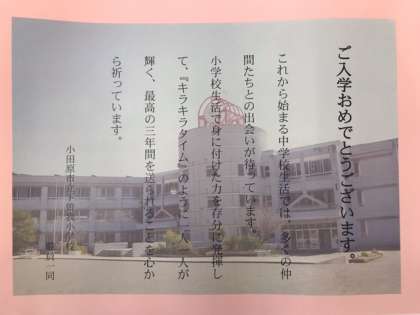 ご入学おめでとうございます。
これから始まる中学校生活では、多くの仲
間たちとの出会いが待っています。
小学校生活で身に付けた力を存分に発揮し
て、『キラキラタイム』のように一人一人が
輝く、最高の三年間を送られることを心か
ら祈っています。
小田原市立下曽我小学校
職員一同